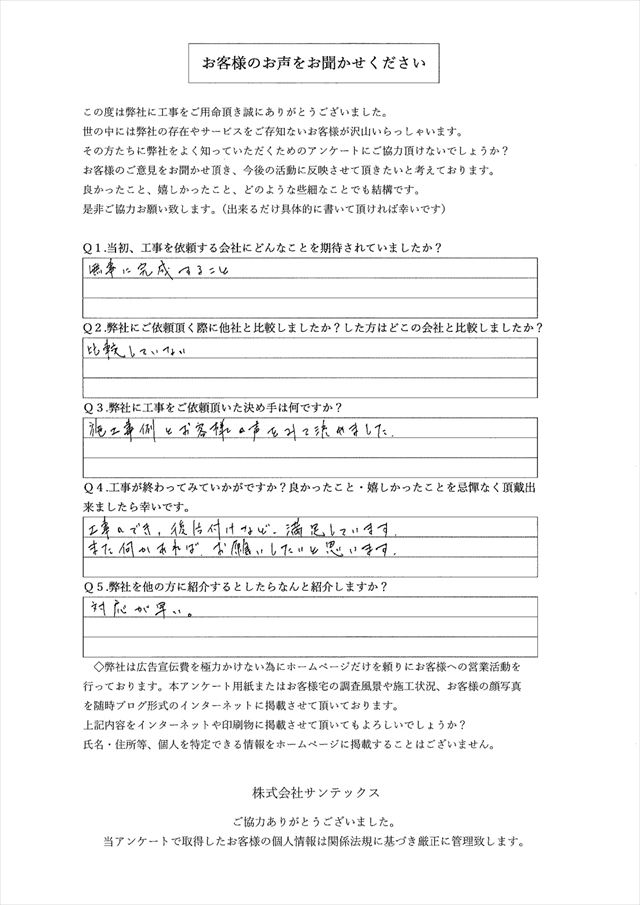 お客様のお声をお聞かせください
この度は弊社に工事をご用命頂き誠にありがとうございました。
世の中には弊社の存在やサービスをご存知ないお客様が沢山いらっしゃいます。
その方たちに弊社をよく知っていただくためのアンケートにご協力頂けないでしょうか？
お客様のご意見をお聞かせ頂き、今後の活動に反映させて頂きたいと考えております。
良かったこと、嬉しかったこと、どのような些細なことでも結構です。
是非ご協力お願い致します。（出来るだけ具体的に書いて頂ければ幸いです）
Ｑ１.当初、工事を依頼する会社にどんなことを期待されていましたか？
無事に完成すること
Ｑ２.弊社にご依頼頂く際に他社と比較しましたか？した方はどこの会社と比較しましたか？
比較していない
Ｑ３.弊社に工事をご依頼頂いた決め手は何ですか？
施工事例とお客様の声をみて決めました.
Ｑ４.工事が終わってみていかがですか？良かったこと・嬉しかったことを忌憚なく頂戴出
来ましたら幸いです。
工事のでき，後片付けなど、満足しています.
また何かあれば、お願いしたいと思います.
Ｑ５.弊社を他の方に紹介するとしたらなんと紹介しますか？
対応が早い。
◇弊社は広告宣伝費を極力かけない為にホームページだけを頼りにお客様への営業活動を
行っております。本アンケート用紙またはお客様宅の調査風景や施工状況、お客様の顔写真
を随時ブログ形式のインターネットに掲載させて頂いております。
上記内容をインターネットや印刷物に掲載させて頂いてもよろしいでしょうか？
氏名・住所等、個人を特定できる情報をホームページに掲載することはございません。
株式会社サンテックス
ご協力ありがとうございました。
当アンケートで取得したお客様の個人情報は関係法規に基づき厳正に管理致します。